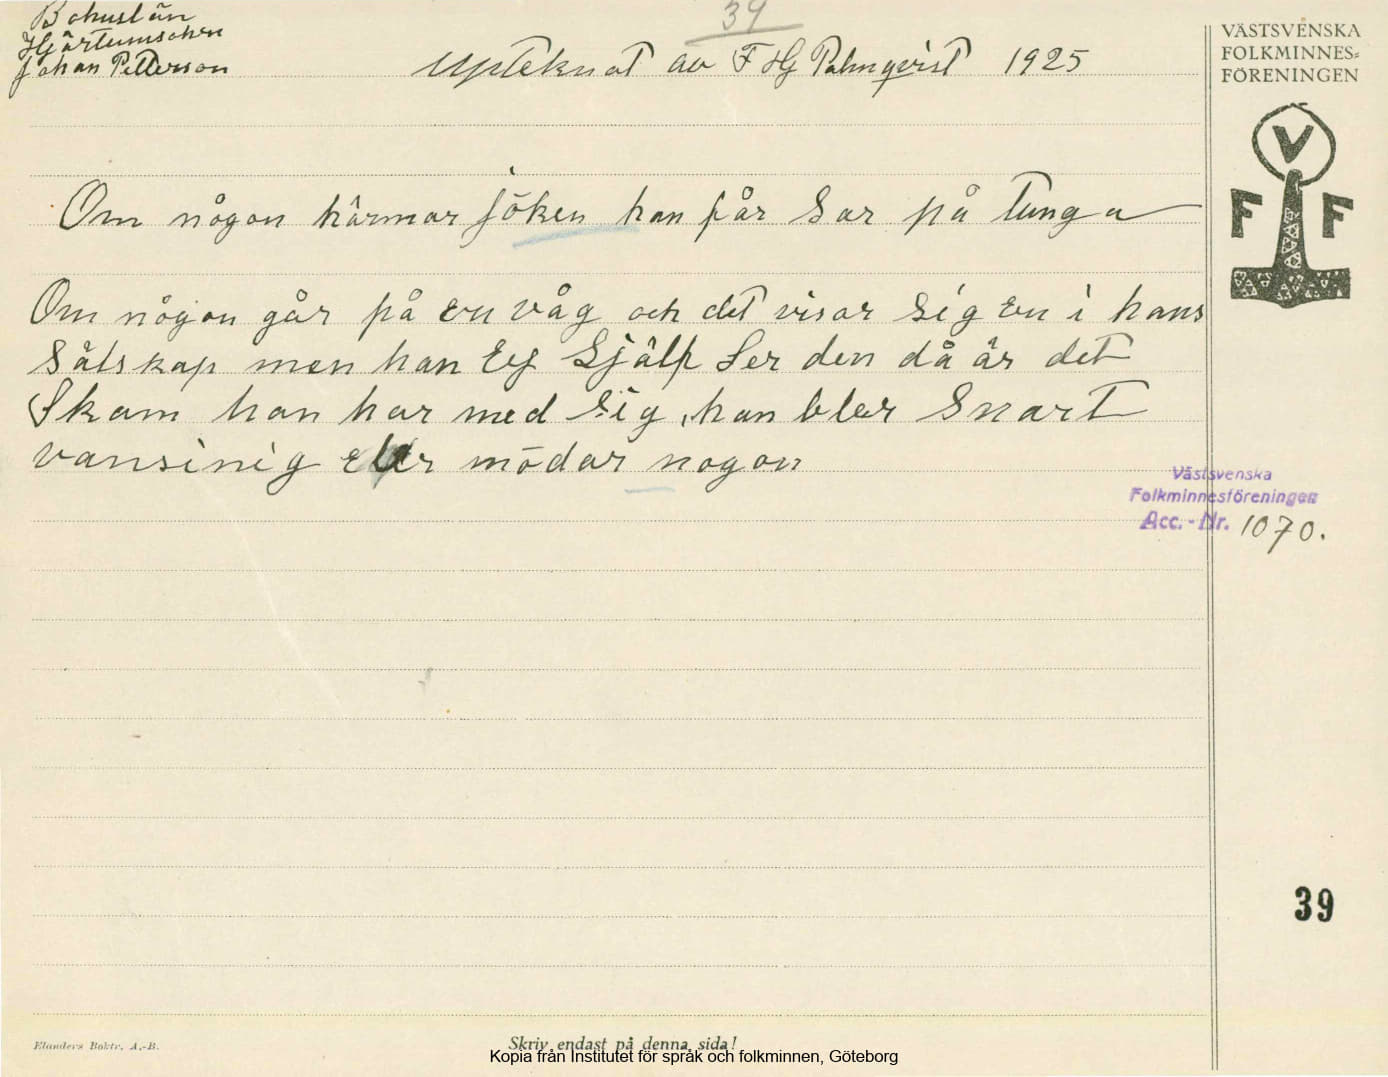 Bohuslän
Hjärtumsoken
Johan Petterson
39
Upteknat av F Hj Palmqvist 1925
VÄSTSVENSKA
FOLKMINNES-
FÖRENINGEN
V
F F
Om någon härmar jöken han får sar på Tunga
Om någon går på en våg och det visar sig en i hans
sälskap men han Ej Själf Ser den då är det
Skam han har med Sig, han bler Snart
vansinig eller mödar nogon
Västsvenska
Folkminnesföreningen
Acc.-Nr. 1070.
39
Elanders Boktr. A.-B.
Skriv endast på denna sida!
Kopia från Institutet för språk och folkminnen, Göteborg